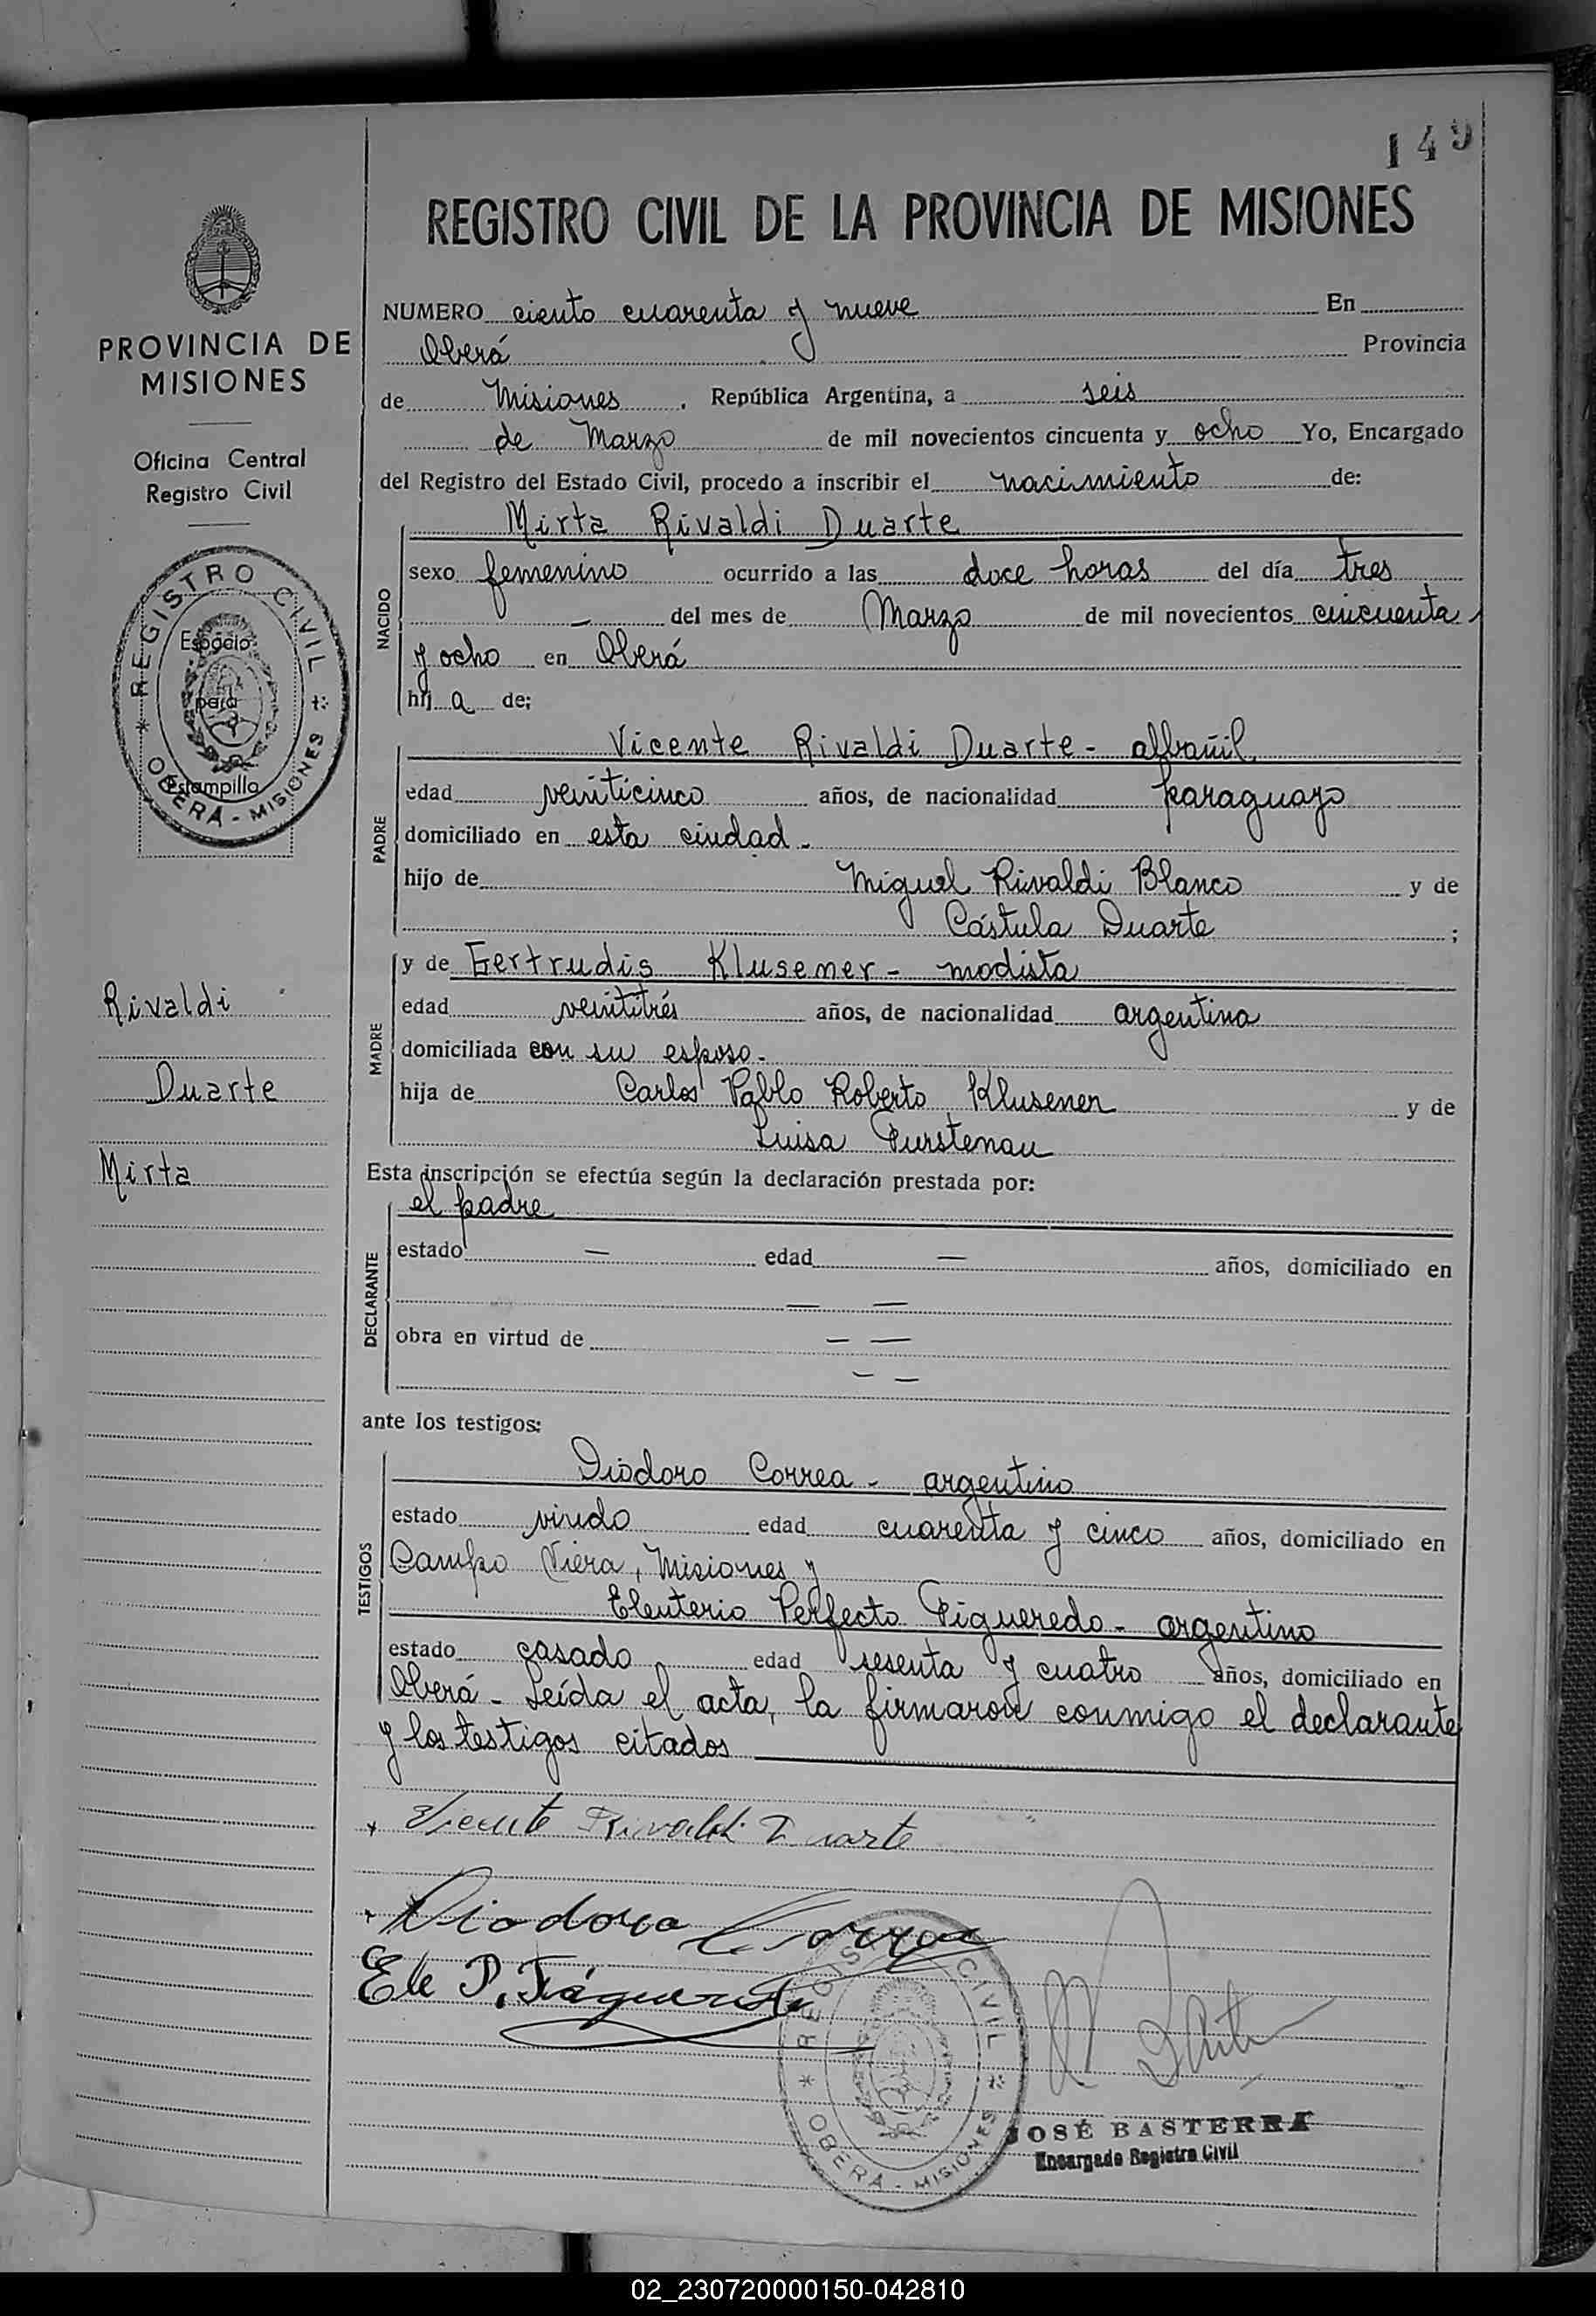 149
REGISTRO CIVIL DE LA PROVINCIA DE MISIONES
PROVINCIA DE
MISIONES
Oficina Central
Registro Civil
REGISTRO CIVIL
* OBERÁ - MISIONES *
Espacio
para
Estampilla
Rivaldi
Duarte
Mirta
NUMERO ciento cuarenta y nueve En
Oberá Provincia
de Misiones. República Argentina, a seis
de Marzo de mil novecientos cincuenta y ocho Yo, Encargado
del Registro del Estado Civil, procedo a inscribir el nacimiento de:
NACIDO
Mirta Rivaldi Duarte
sexo femenino ocurrido a las doce horas del día tres
— del mes de Marzo de mil novecientos cincuenta
y ocho en Oberá
hij a de;
PADRE
Vicente Rivaldi Duarte - albañil
edad veinticinco años, de nacionalidad paraguayo
domiciliado en esta ciudad -
hijo de Miguel Rivaldi Blanco y de
Cástula Duarte ;
MADRE
y de Gertrudis Klusener - modista
edad veintitrés años, de nacionalidad argentina
domiciliada con su esposo -
hija de Carlos Pablo Roberto Klusener y de
Luisa Furstenau
Esta inscripción se efectúa según la declaración prestada por:
DECLARANTE
el padre
estado — edad — años, domiciliado en
— —
obra en virtud de — —
— —
ante los testigos:
TESTIGOS
Diódoro Correa - argentino
estado viudo edad cuarenta y cinco años, domiciliado en
Campo Viera, Misiones y
Eleuterio Perfecto Figueredo - argentino
estado casado edad sesenta y cuatro años, domiciliado en
Oberá - Leída el acta, la firmaron conmigo el declarante
y los testigos citados
Vicente Rivaldi Duarte
Diodoro Correa
Ele P. Figueredo
REGISTRO CIVIL
* OBERÁ - MISIONES *
JOSÉ BASTERRA
Encargado Registro Civil
02_230720000150-042810